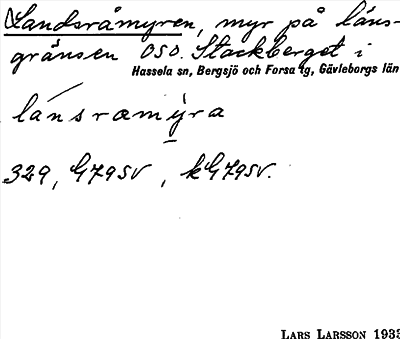 Landsråmyren, myr på läns-
gränsen OSO. Stackberget i
Hassela sn, Bergsjö och Forsa tg, Gävleborgs län
länsramyra
329, G79SV, kG79SV.
LARS LARSSON 1933